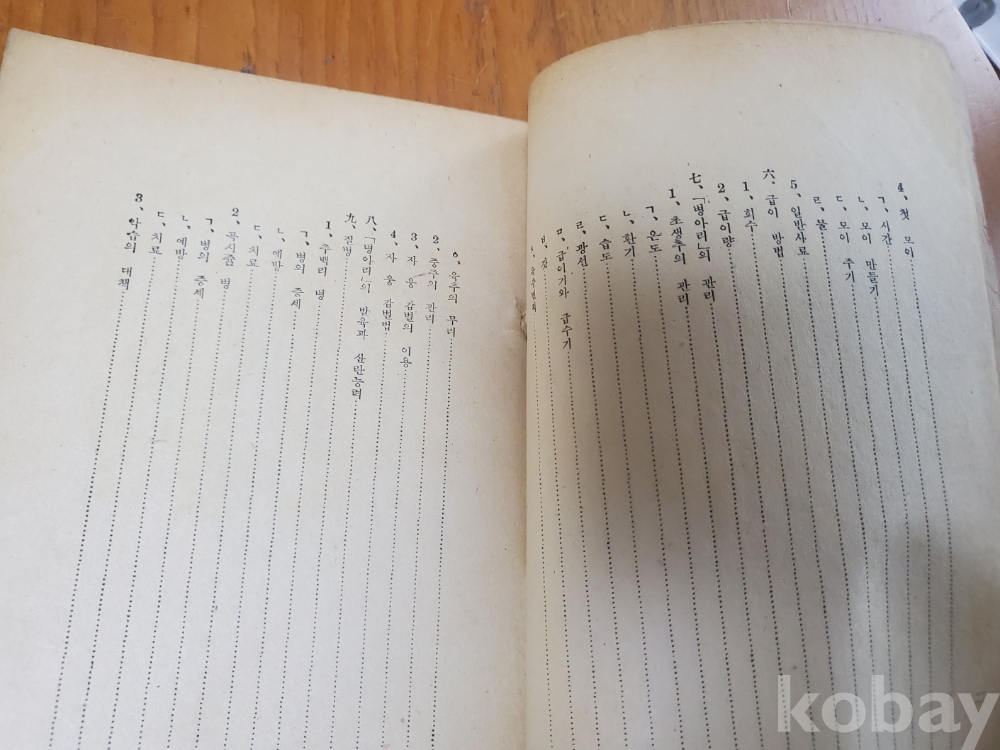 4、첫 모이
ㄱ、시간
ㄴ、모이 만들기
ㄷ、모이 주기
ㄹ、물
5、일반사료
六、급이 방법
1、회수
2、급이량
七、「병아리」의 관리
1、초생추의 관리
ㄱ、온도
ㄴ、환기
ㄷ、습도
ㄹ、광선
ㅁ、급이기와 급수기
ㅂ、
ㅇ、육추의 무리
2、중추의 관리
3、자웅 감별의 이용
4、자웅 감별법
八、「병아리」의 발육과 산란능력
九、질병
1、추백리 병
ㄱ、병의 증세
ㄴ、예방
ㄷ、치료
2、콕시줌 병
ㄱ、병의 증세
ㄴ、예방
ㄷ、치료
3、악습의 대책
kobay